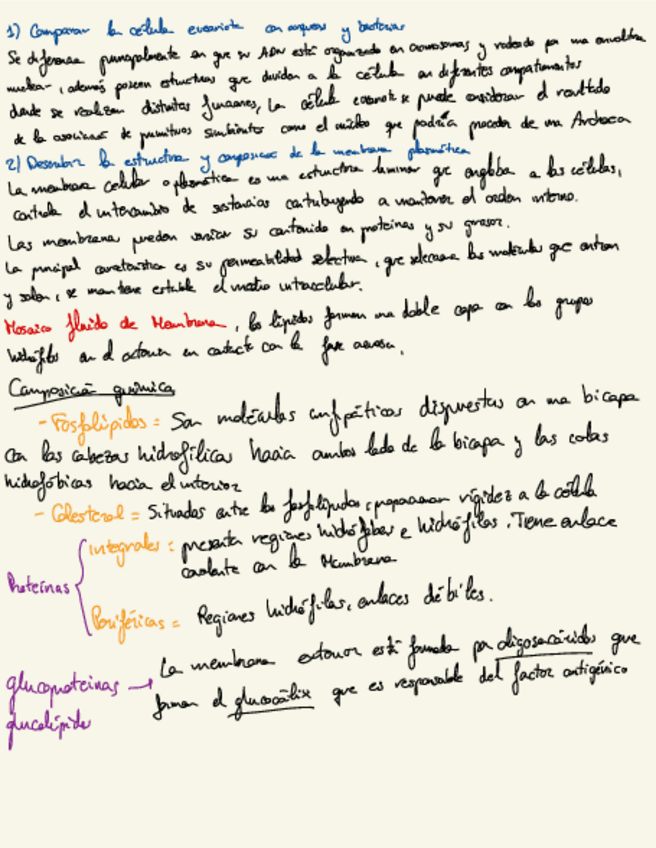 1) Comparar la célula eucariota con arqueas y bacterias
Se diferencia principalmente en que su ADN está organizado en cromosomas y rodeado por una envoltura
nuclear, además poseen estructuras que dividen a la célula en diferentes compartimentos
donde se realizan distintas funciones, La célula eucariota se puede considerar el resultado
de la asociación de primitivos simbiontes como el núcleo que podría proceder de una Archaea
2) Describir la estructura y composición de la membrana plasmática
La membrana celular o plasmática es una estructura laminar que engloba a las células,
controla el intercambio de sustancias contribuyendo a mantener el orden interno.
Las membrana pueden variar su contenido en proteínas y su grosor.
La principal característica es su permeabilidad selectiva, que selecciona las moléculas que entran
y salen, se mantiene estable el medio intracelular.
Mosaico fluido de Membrana, los lípidos forman una doble capa con los grupos
hidrófilos en el exterior en contacto con la fase acuosa.
Composición química
- Fosfolípidos = Son moléculas anfipáticas dispuestas en una bicapa
con las cabezas hidrofílicas hacia ambos lado de la bicapa y las colas
hidrofóbicas hacia el interior
- Colesterol = Situados entre los fosfolípidos, proporcionan rigidez a la célula
Proteínas
integrales = presenta regiones hidrófobas e hidrófilas. Tiene enlace
covalente con la Membrana
Periféricas = Regiones hidrófilas, enlaces débiles.
glucoproteinas → La membrana exterior está formada por oligosacáridos que
glucolípido forman el glucocálix que es responsable del factor antigénico